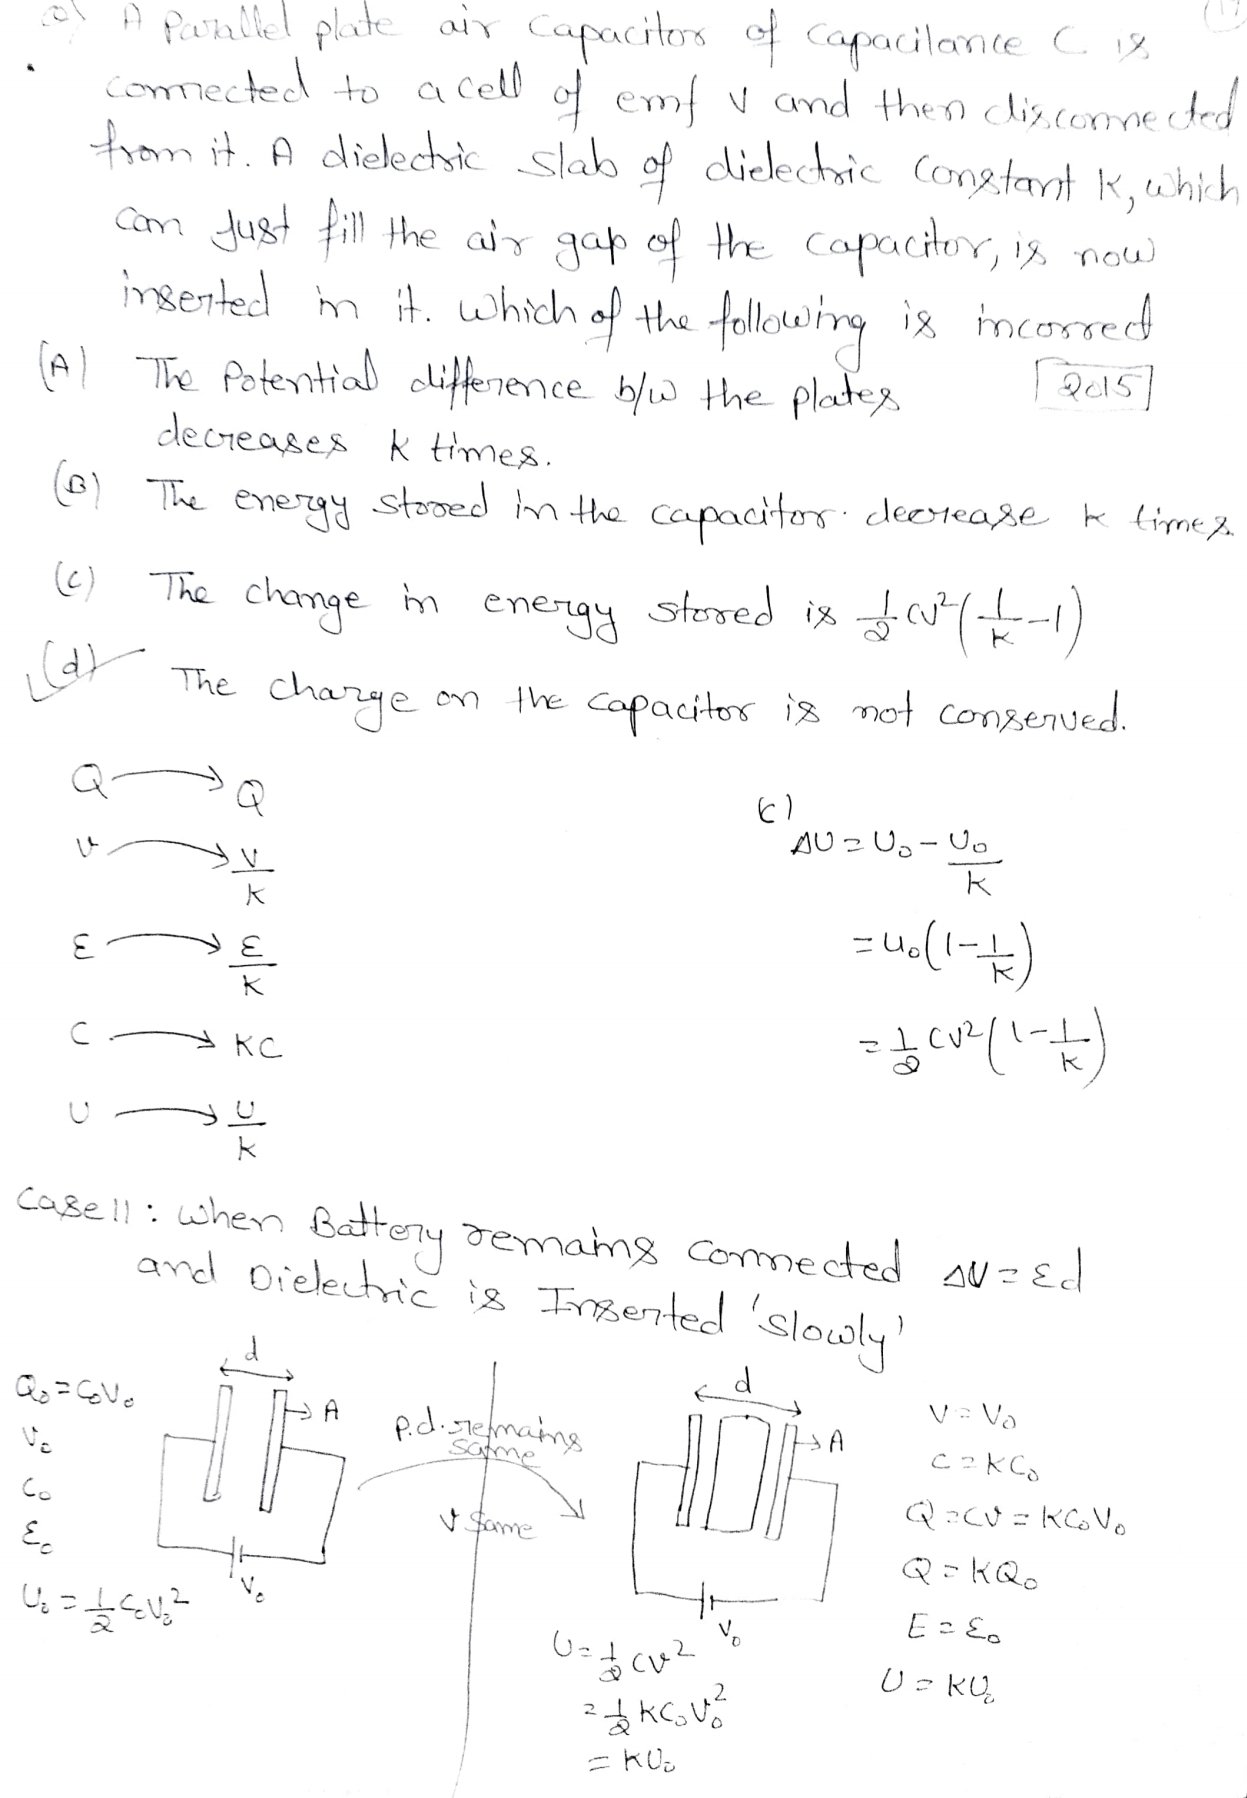 Q) A Parallel plate air capacitor of capacilance C is
connected to a cell of emf V and then disconnected
from it. A dielectric slab of dielectric constant K, which
can Just fill the air gap of the capacitor, is now
inserted in it. Which of the following is incorrect
(A) The Potential difference b/w the plates
2015
decreases K times.
(B) The energy stored in the capacitor. decrease K times.
(C) The change in energy stored is 1/2 CV²(1/K - 1)
(d) The charge on the capacitor is not conserved.
Q → Q
V → V/K
ε → ε/K
C → KC
U → U/K
C)
ΔU = U₀ - U₀/K
= U₀(1 - 1/K)
= 1/2 CV²(1 - 1/K)
Case II : When Battery remains connected ΔV = Ed
and Dielectric is Inserted 'slowly'
Q₀ = C₀V₀
V₀
C₀
ε₀
U₀ = 1/2 C₀V₀²
d
A
V₀
p.d. remains
same
V same
d
A
V₀
V = V₀
C = KC₀
Q = CV = KC₀V₀
Q = KQ₀
E = ε₀
U = KU₀
U = 1/2 CV²
= 1/2 KC₀V₀²
= KU₀